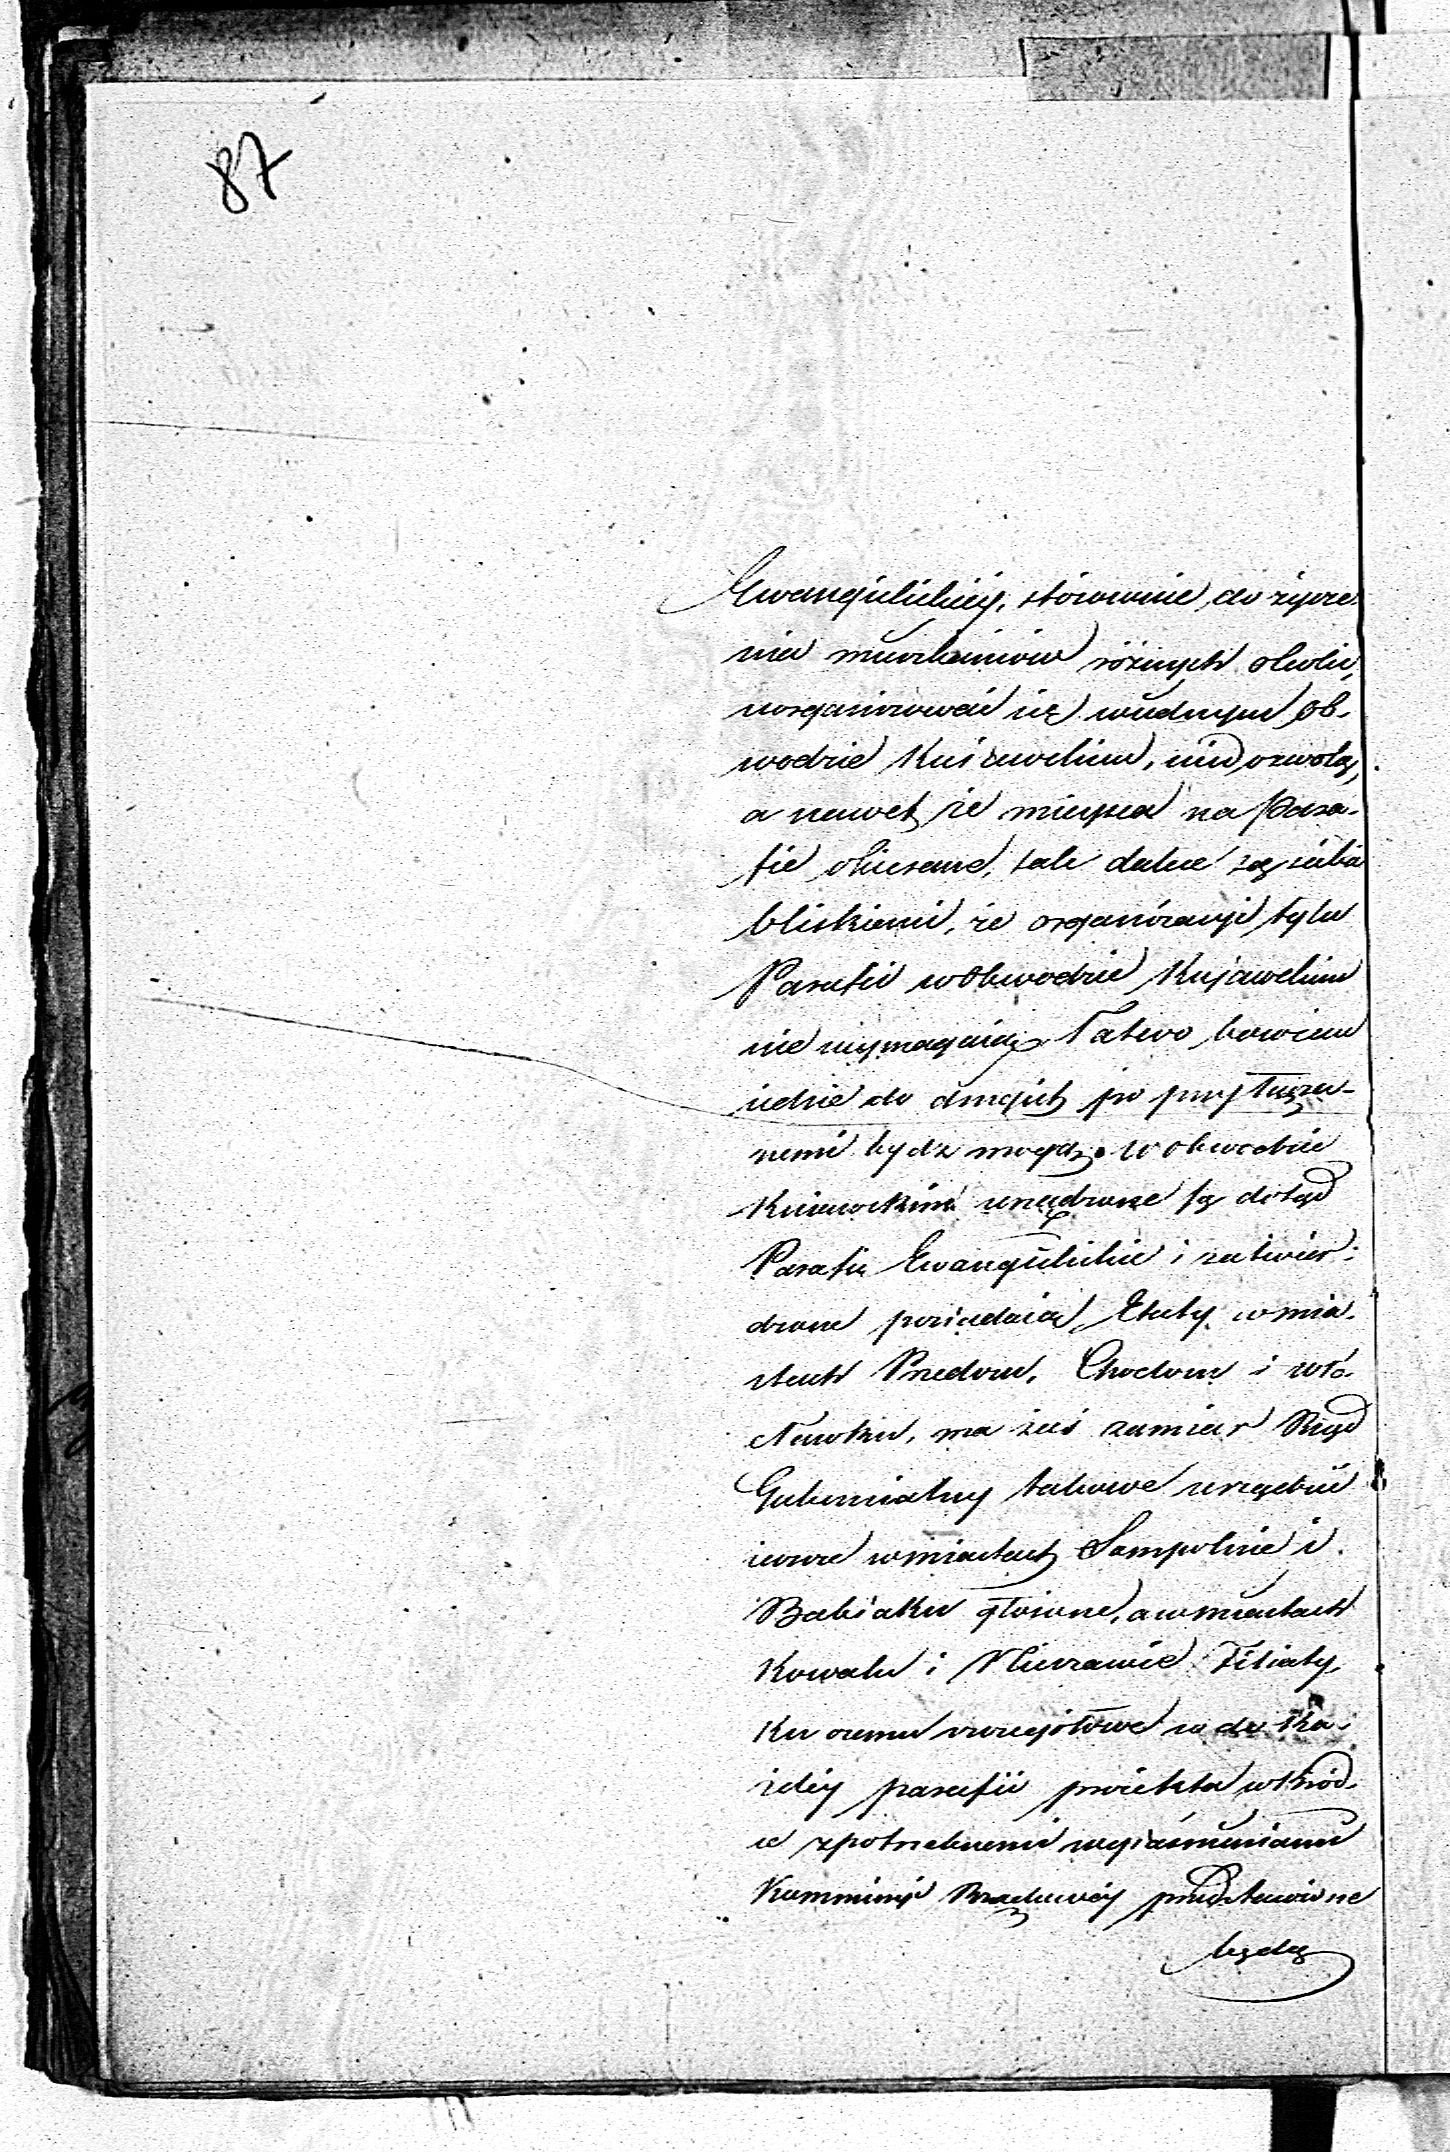 87
Ewangelickiéy, stósownie do życze-
nia mieszkańców różnych okolic,
uorganizować się w iednym Ob-
wodzie Kuiawskim, niedozwolą,
a nawet że mieysca na Para-
fie obierane, tak dalece są siebie
bliskiemi, że organizacyi tylu
Parafii w Obwodzie Kujawskim
nie wymagaią. Łatwo bowiem
iedne do drugich po przyłącza-
nemi bydź mogą. w obwodzie
Kuiawskim urządzone są dotąd
Parafie Ewangelickie i zatwier-
dzone posiadaią Etaty w mia-
stach Przedczu, Chodczu i Wło-
cławku, ma zaś zamiar Rząd
Gubernialny takowe urządzić
ieszcze w miastach Sompolnie i
Babiaku główne, a w miastach
Kowalu i Nieszawie Filiały,
ku czemu szczegółowe co do ka-
żdéy parafii proiekta wkród-
ce z potrzebnemi wyiaśnieniami
Kommissyi Rządowéy przedstawione
będą